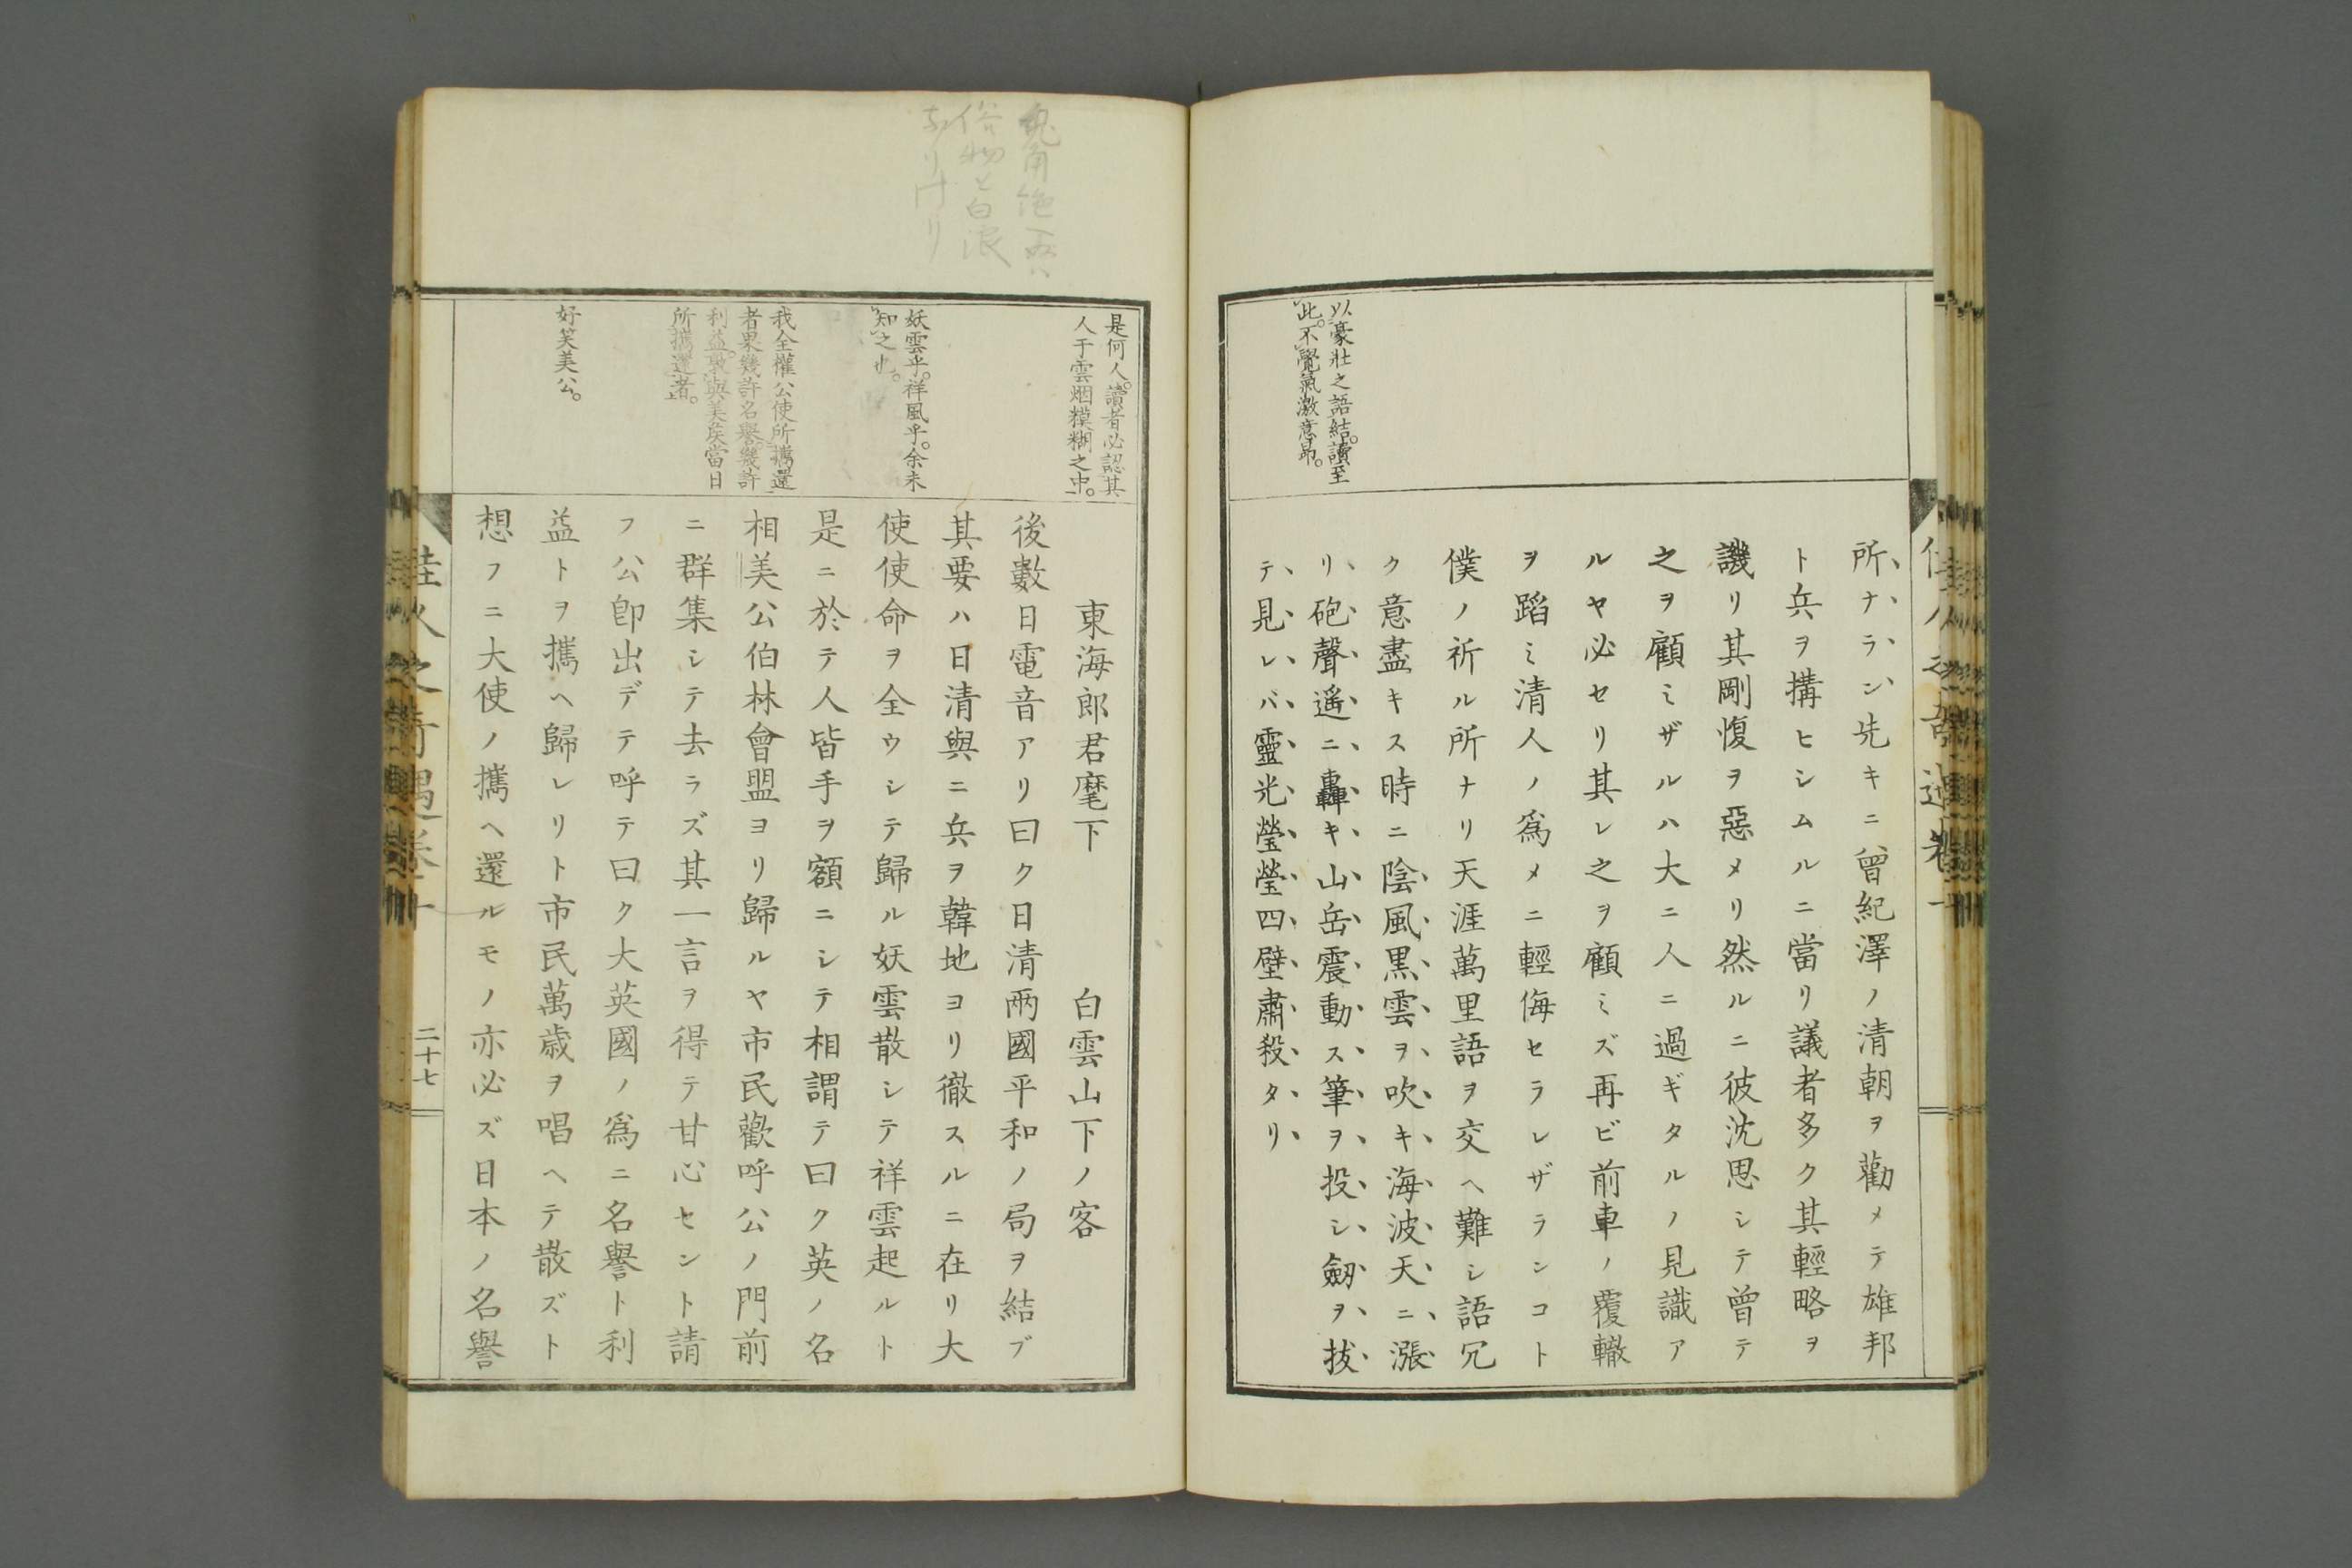 以豪壯之語結。讀至
此。不覺氣激意昂。
所ナラン先キニ曾紀澤ノ清朝ヲ勸メテ雄邦
ト兵ヲ搆ヒシムルニ當リ議者多ク其輕略ヲ
譏リ其剛愎ヲ惡メリ然ルニ彼沈思シテ曾テ
之ヲ顧ミザルハ大ニ人ニ過ギタルノ見識ア
ルヤ必セリ其レ之ヲ顧ミズ再ビ前車ノ覆轍
ヲ蹈ミ清人ノ爲メニ輕侮セラレザランコト
僕ノ祈ル所ナリ天涯萬里語ヲ交ヘ難シ語冗
ク意盡キス時ニ陰風黒雲ヲ吹キ海波天ニ漲
リ砲聲遥ニ轟キ山岳震動ス筆ヲ投シ劔ヲ抜
テ見レバ靈光瑩瑩四壁肅殺タリ
是何人。讀者必認其
人于雲烟糢糊之中。
妖雲乎。祥風乎。余未
知之也。
我全權公使所攜還
者果幾許名譽。幾許
利益。敦與美矦當日
所攜還者。
好笑美公。
東海郎君麾下　白雲山下ノ客
後數日電音アリ曰ク日清兩國平和ノ局ヲ結ブ
其要ハ日清與ニ兵ヲ韓地ヨリ徹スルニ在リ大
使使命ヲ全ウシテ歸ル妖雲散シテ祥雲起ルト
是ニ於テ人皆手ヲ額ニシテ相謂テ曰ク英ノ名
相美公伯林會盟ヨリ歸ルヤ市民歡呼公ノ門前
ニ群集シテ去ラズ其一言ヲ得テ甘心セント請
フ公卽出デテ呼テ曰ク大英國ノ爲ニ名譽ト利
益トヲ攜ヘ歸レリト市民萬歳ヲ唱ヘテ散ズト
想フニ大使ノ攜ヘ還ルモノ亦必ズ日本ノ名譽
佳人之奇遇卷十
二十七